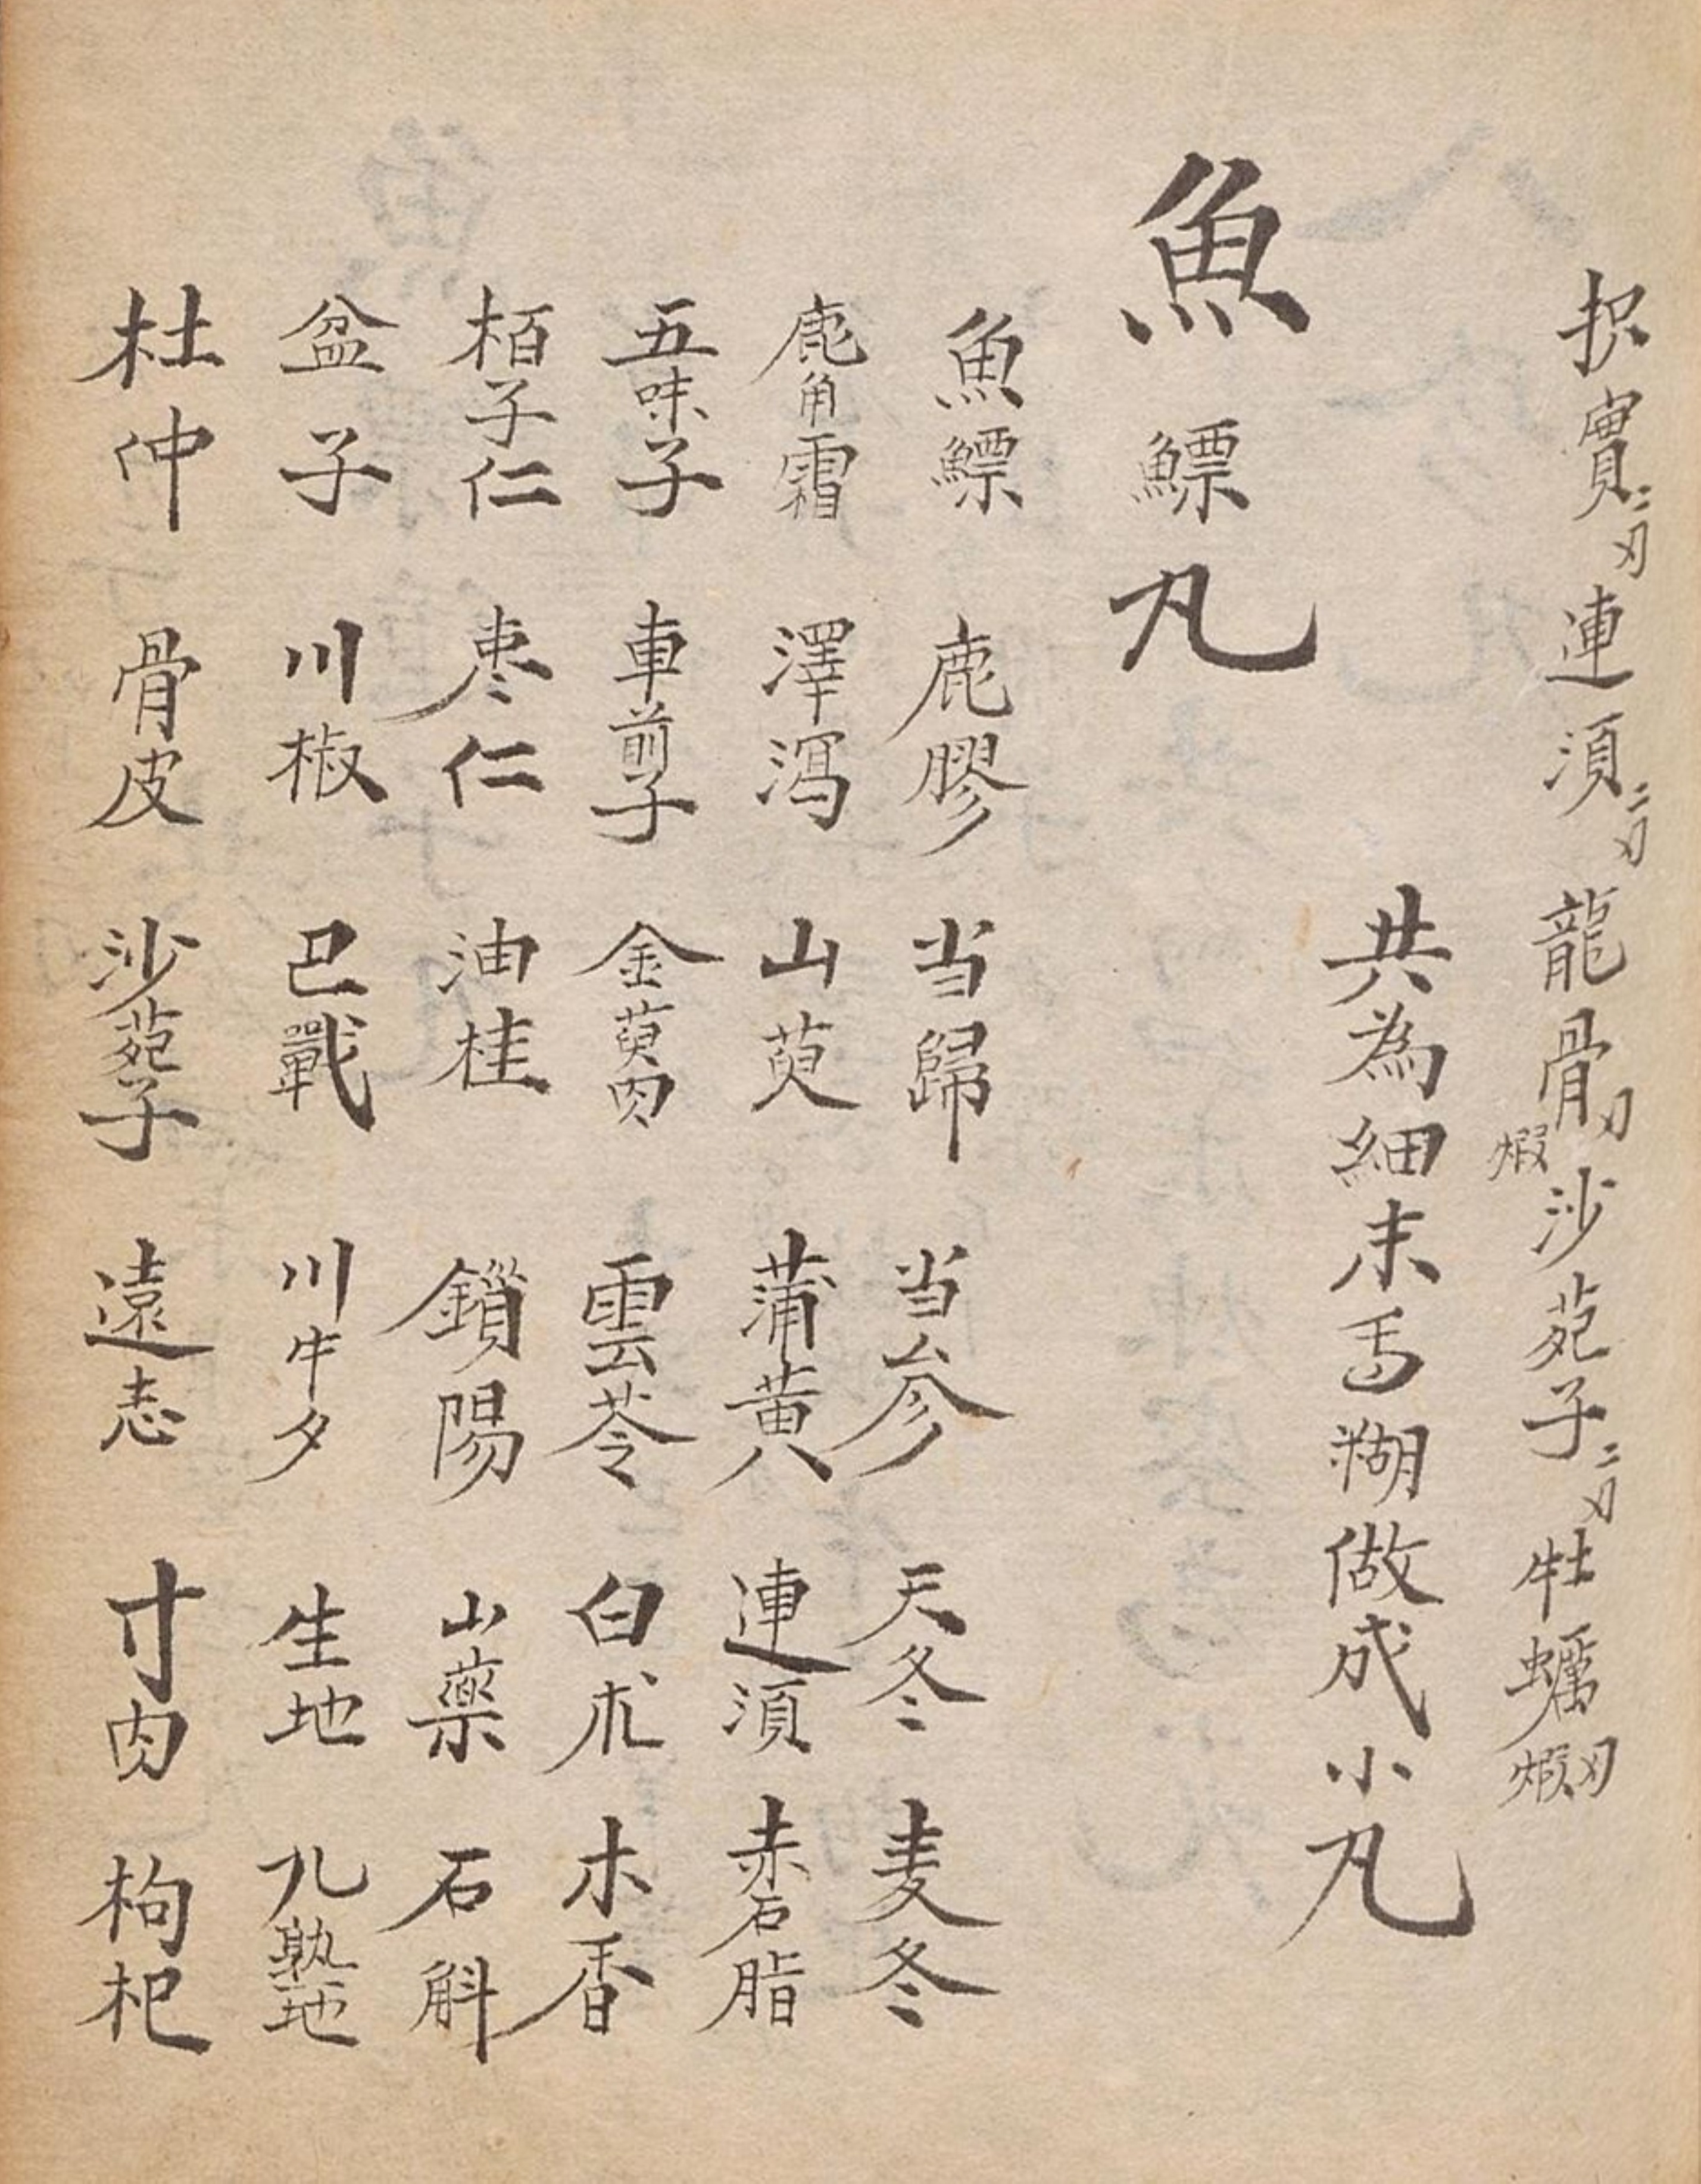 枳實二刄連須二刄龍骨刄煆沙苑子二刄牡蠣刄煆
共為細末丐糊做成小丸
魚鰾丸
魚鰾 鹿膠 当歸 当参 天冬 麦冬
鹿角霜 澤瀉 山萸 蒲黄 連須 赤石脂
五味子 車前子 金萸肉 雲苓 白朮 木香
栢子仁 枣仁 油桂 鎖陽 山藥 石斛
盆子 川椒 巴戰 川牛夕 生地 九熟地
杜仲 骨皮 沙苑子 遠志 寸肉 枸杞